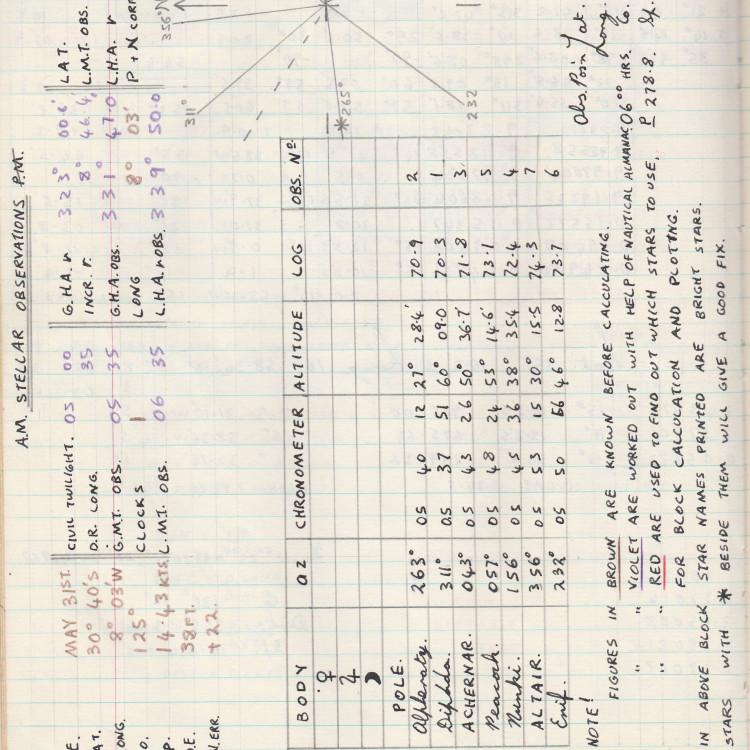 A.M. STELLAR OBSERVATIONS P.M.
E. MAY 31ST. CIVIL TWILIGHT. 05 00 G.H.A. ♈ 323° 00.6' LAT.
AT. 30° 40'S D.R. LONG. 35 INCR. ♈ 8° 46.4' L.M.T. OBS.
ONG. 8° 03'W G.M.T. OBS. 05 35 G.H.A. OBS. 331° 47.0' L.H.A. ♈
O. 125° CLOCKS 1 LONG 8° 03' P + N CORR
P. 14.43 KTS. L.M.T. OBS. 06 35 L.H.A. ♈ OBS. 339° 50.0
.E. 38FT.
. ERR. +22.
356° N
311°
*265°
232
BODY az CHRONOMETER ALTITUDE LOG OBS. No.
♀
♃
☽
POLE.
Alpheratz. 263° 05 40 12 27° 28.4' 70.9 2
Diphda. 311° 05 37 51 60° 09.0 70.3 1
ACHERNAR. 043° 05 43 26 50° 36.7' 71.8 3
Peacock. 057° 05 48 24 53° 14.6' 73.1 5
Nunki. 156° 05 45 36 38° 35.4 72.4 4
ALTAIR. 356° 05 53 15 30° 15.5 74.3 7
Enif. 232° 05 50 66 46° 12.8 73.7 6
Obs. Posn Lat.
Long.
06 00 HRS. Co
P 278.8. Sp.
NOTE!
FIGURES IN BROWN ARE KNOWN BEFORE CALCULATING.
" " VIOLET ARE WORKED OUT WITH HELP OF NAUTICAL ALMANAC.
" " RED ARE USED TO FIND OUT WHICH STARS TO USE,
FOR BLOCK CALCULATION AND PLOTTING.
IN ABOVE BLOCK STAR NAMES PRINTED ARE BRIGHT STARS.
STARS WITH * BESIDE THEM WILL GIVE A GOOD FIX.